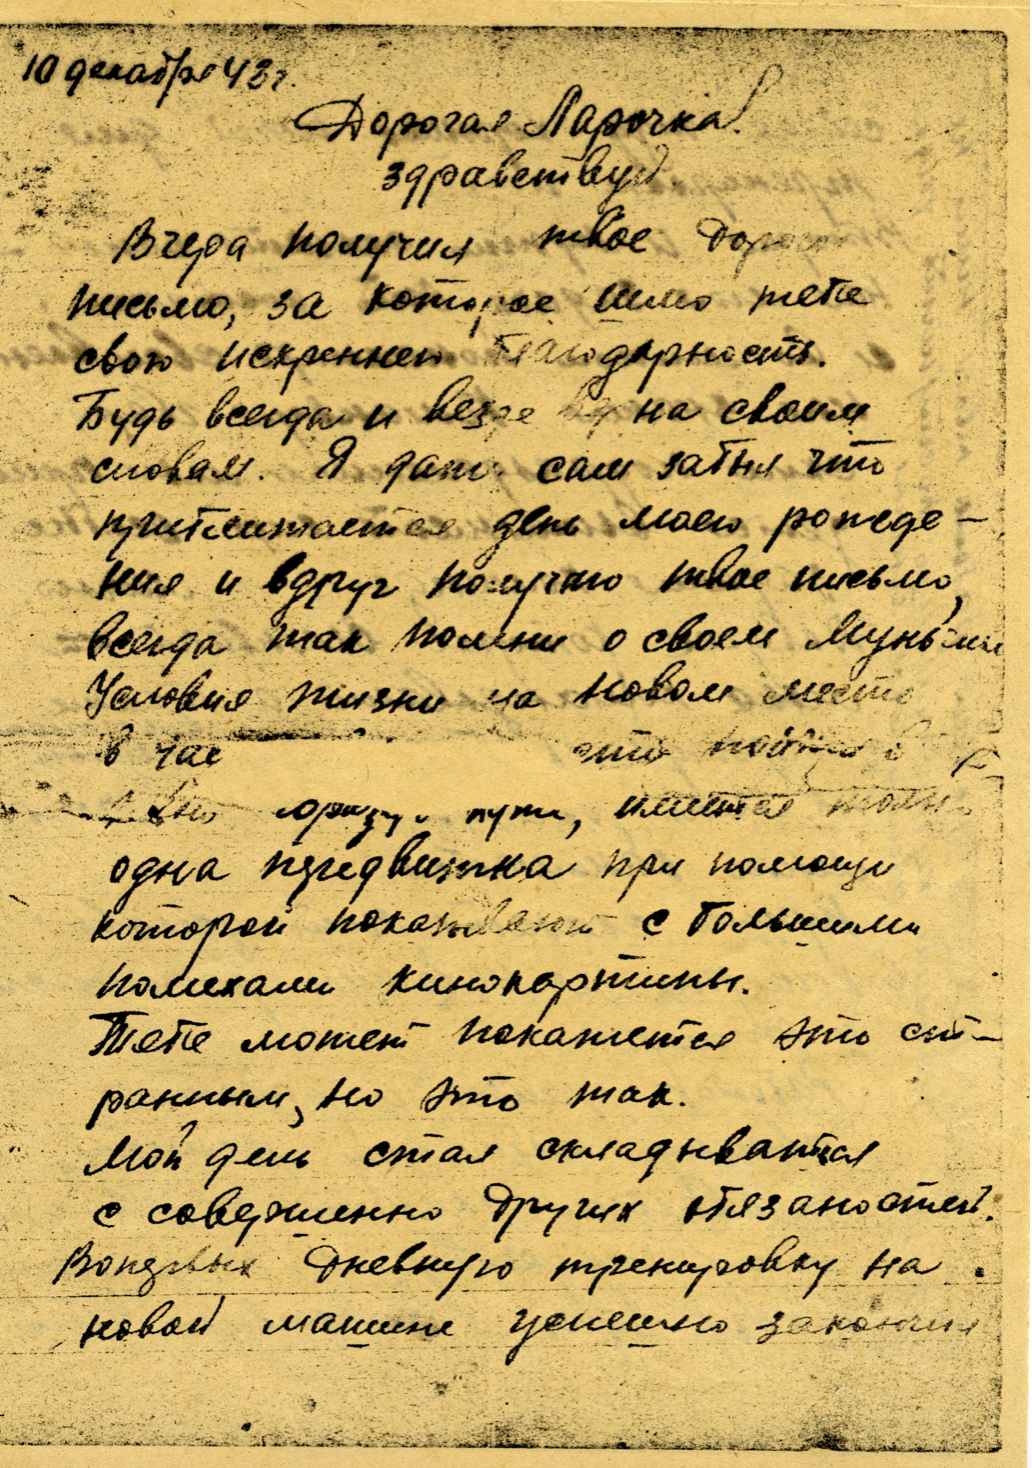 10 декабря 43 г.
Дорогая Ларочка!
здравствуй
Вчера получил твое
письмо, за которое шлю тебе
свою искреннею благодарность.
Будь всегда и везде верна своим
словам. Я даже сам забыл что
приближается день моего рожде-
ния и вдруг получаю твое письмо,
всегда так помни о своем
Условия жизни на новом месте
в час это
пути, имеется
одна передвижка при помощи
которой показывают с большими
помехами кинокартины.
Тебе может покажется это ст-
ранным, но это так.
Мой день стал складыватся
с совершенно других обязаностей.
Вопервых дневную тренировку на
новой машине успешно закончил